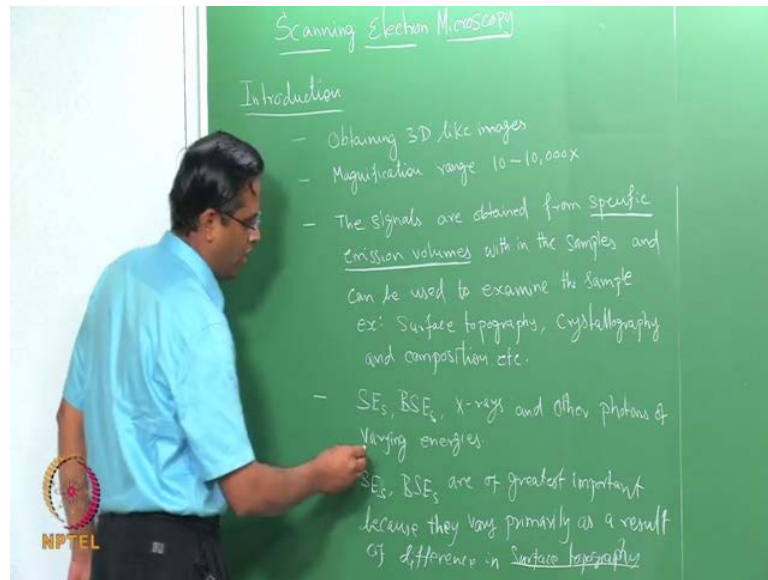 Scanning Electron Microscopy
Introduction
- Obtaining 3D like images
- Magnification range 10-10,000x
- The signals are obtained from specific
emission volumes with in the samples and
can be used to examine the sample
ex: Surface topography, Crystallography
and composition etc.
- SEs, BSEs, X-rays and other photons of
varying energies.
SEs, BSEs are of greatest important
because they vary primarily as a result
of difference in surface topography
NPTEL